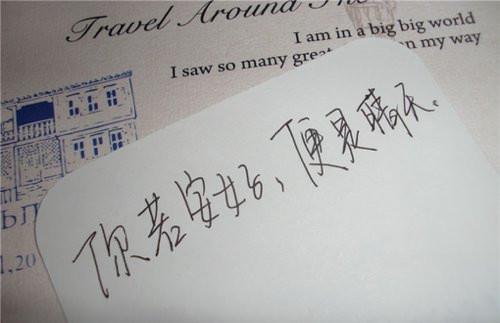 Travel Around The
I am in a big big world
I saw so many great on my way
你若安好、便是晴天.
1,20